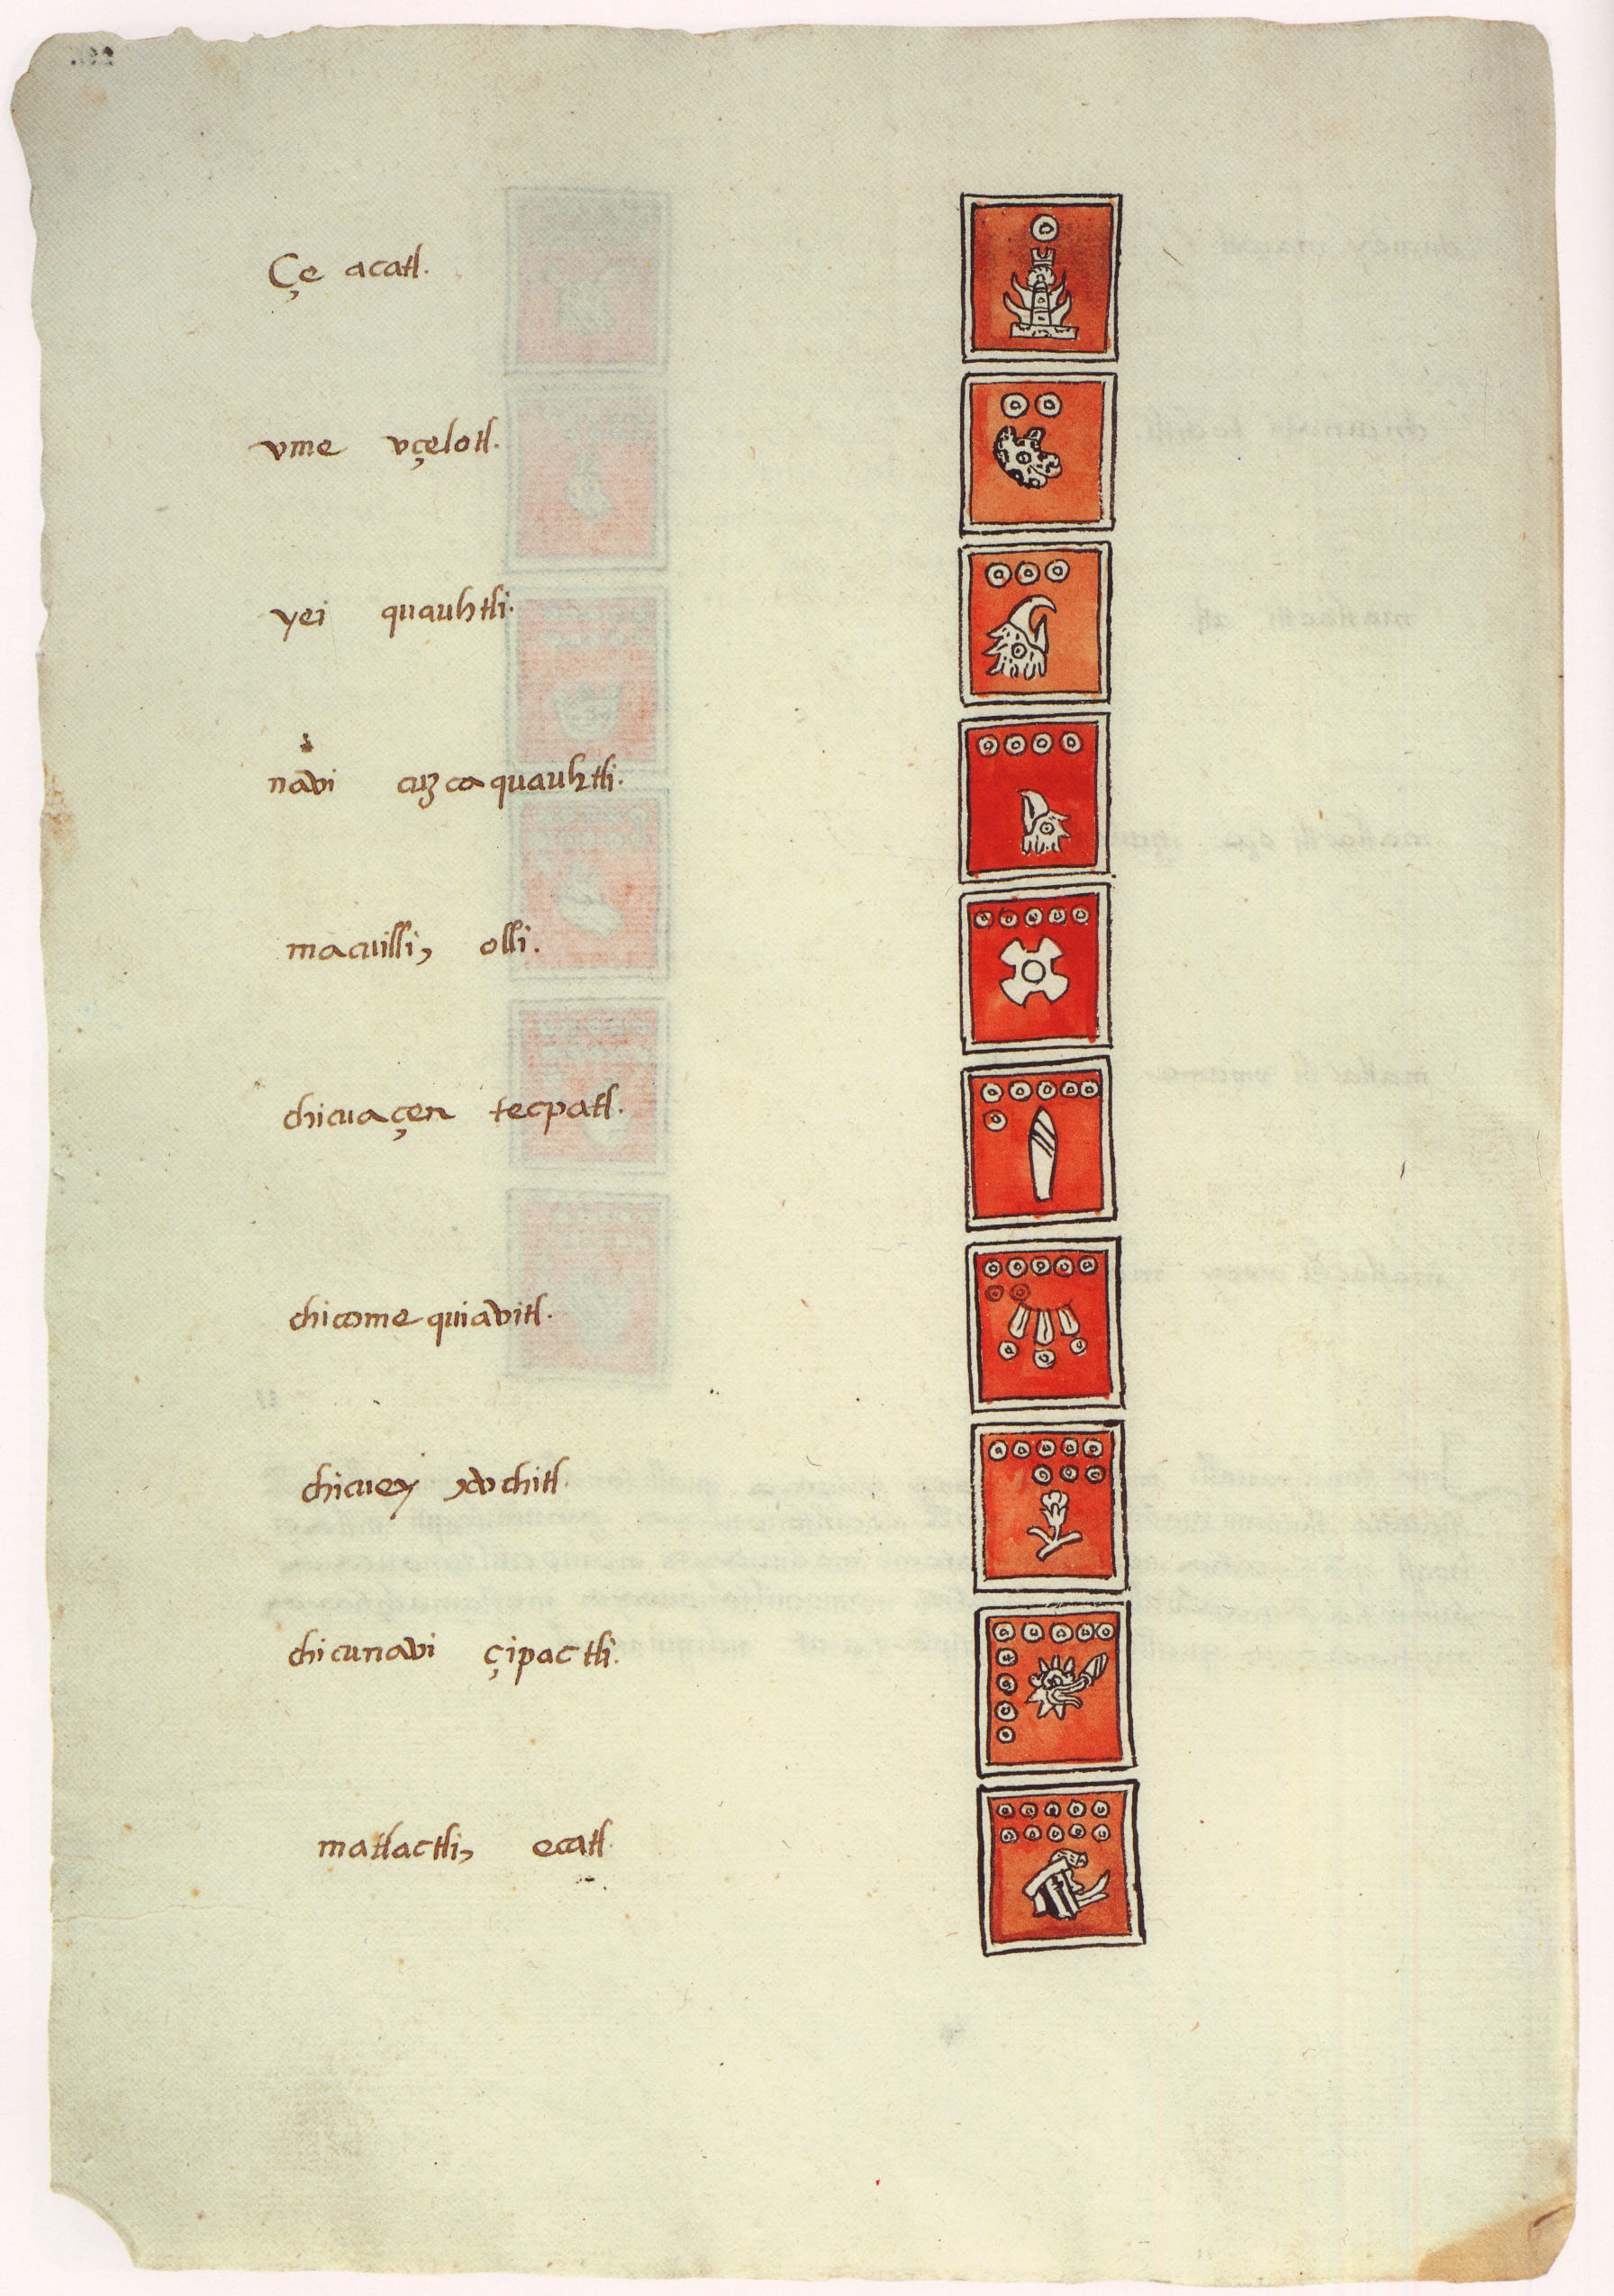 Çe acatl.
vme vçelotl.
yei quauhtli.
navi cuzcaquauhtli.
macuilli, olli.
chicuaçen tecpatl.
chicome quiavitl.
chicuey xochitl.
chicunavi çipactli.
matlactli, ecatl.